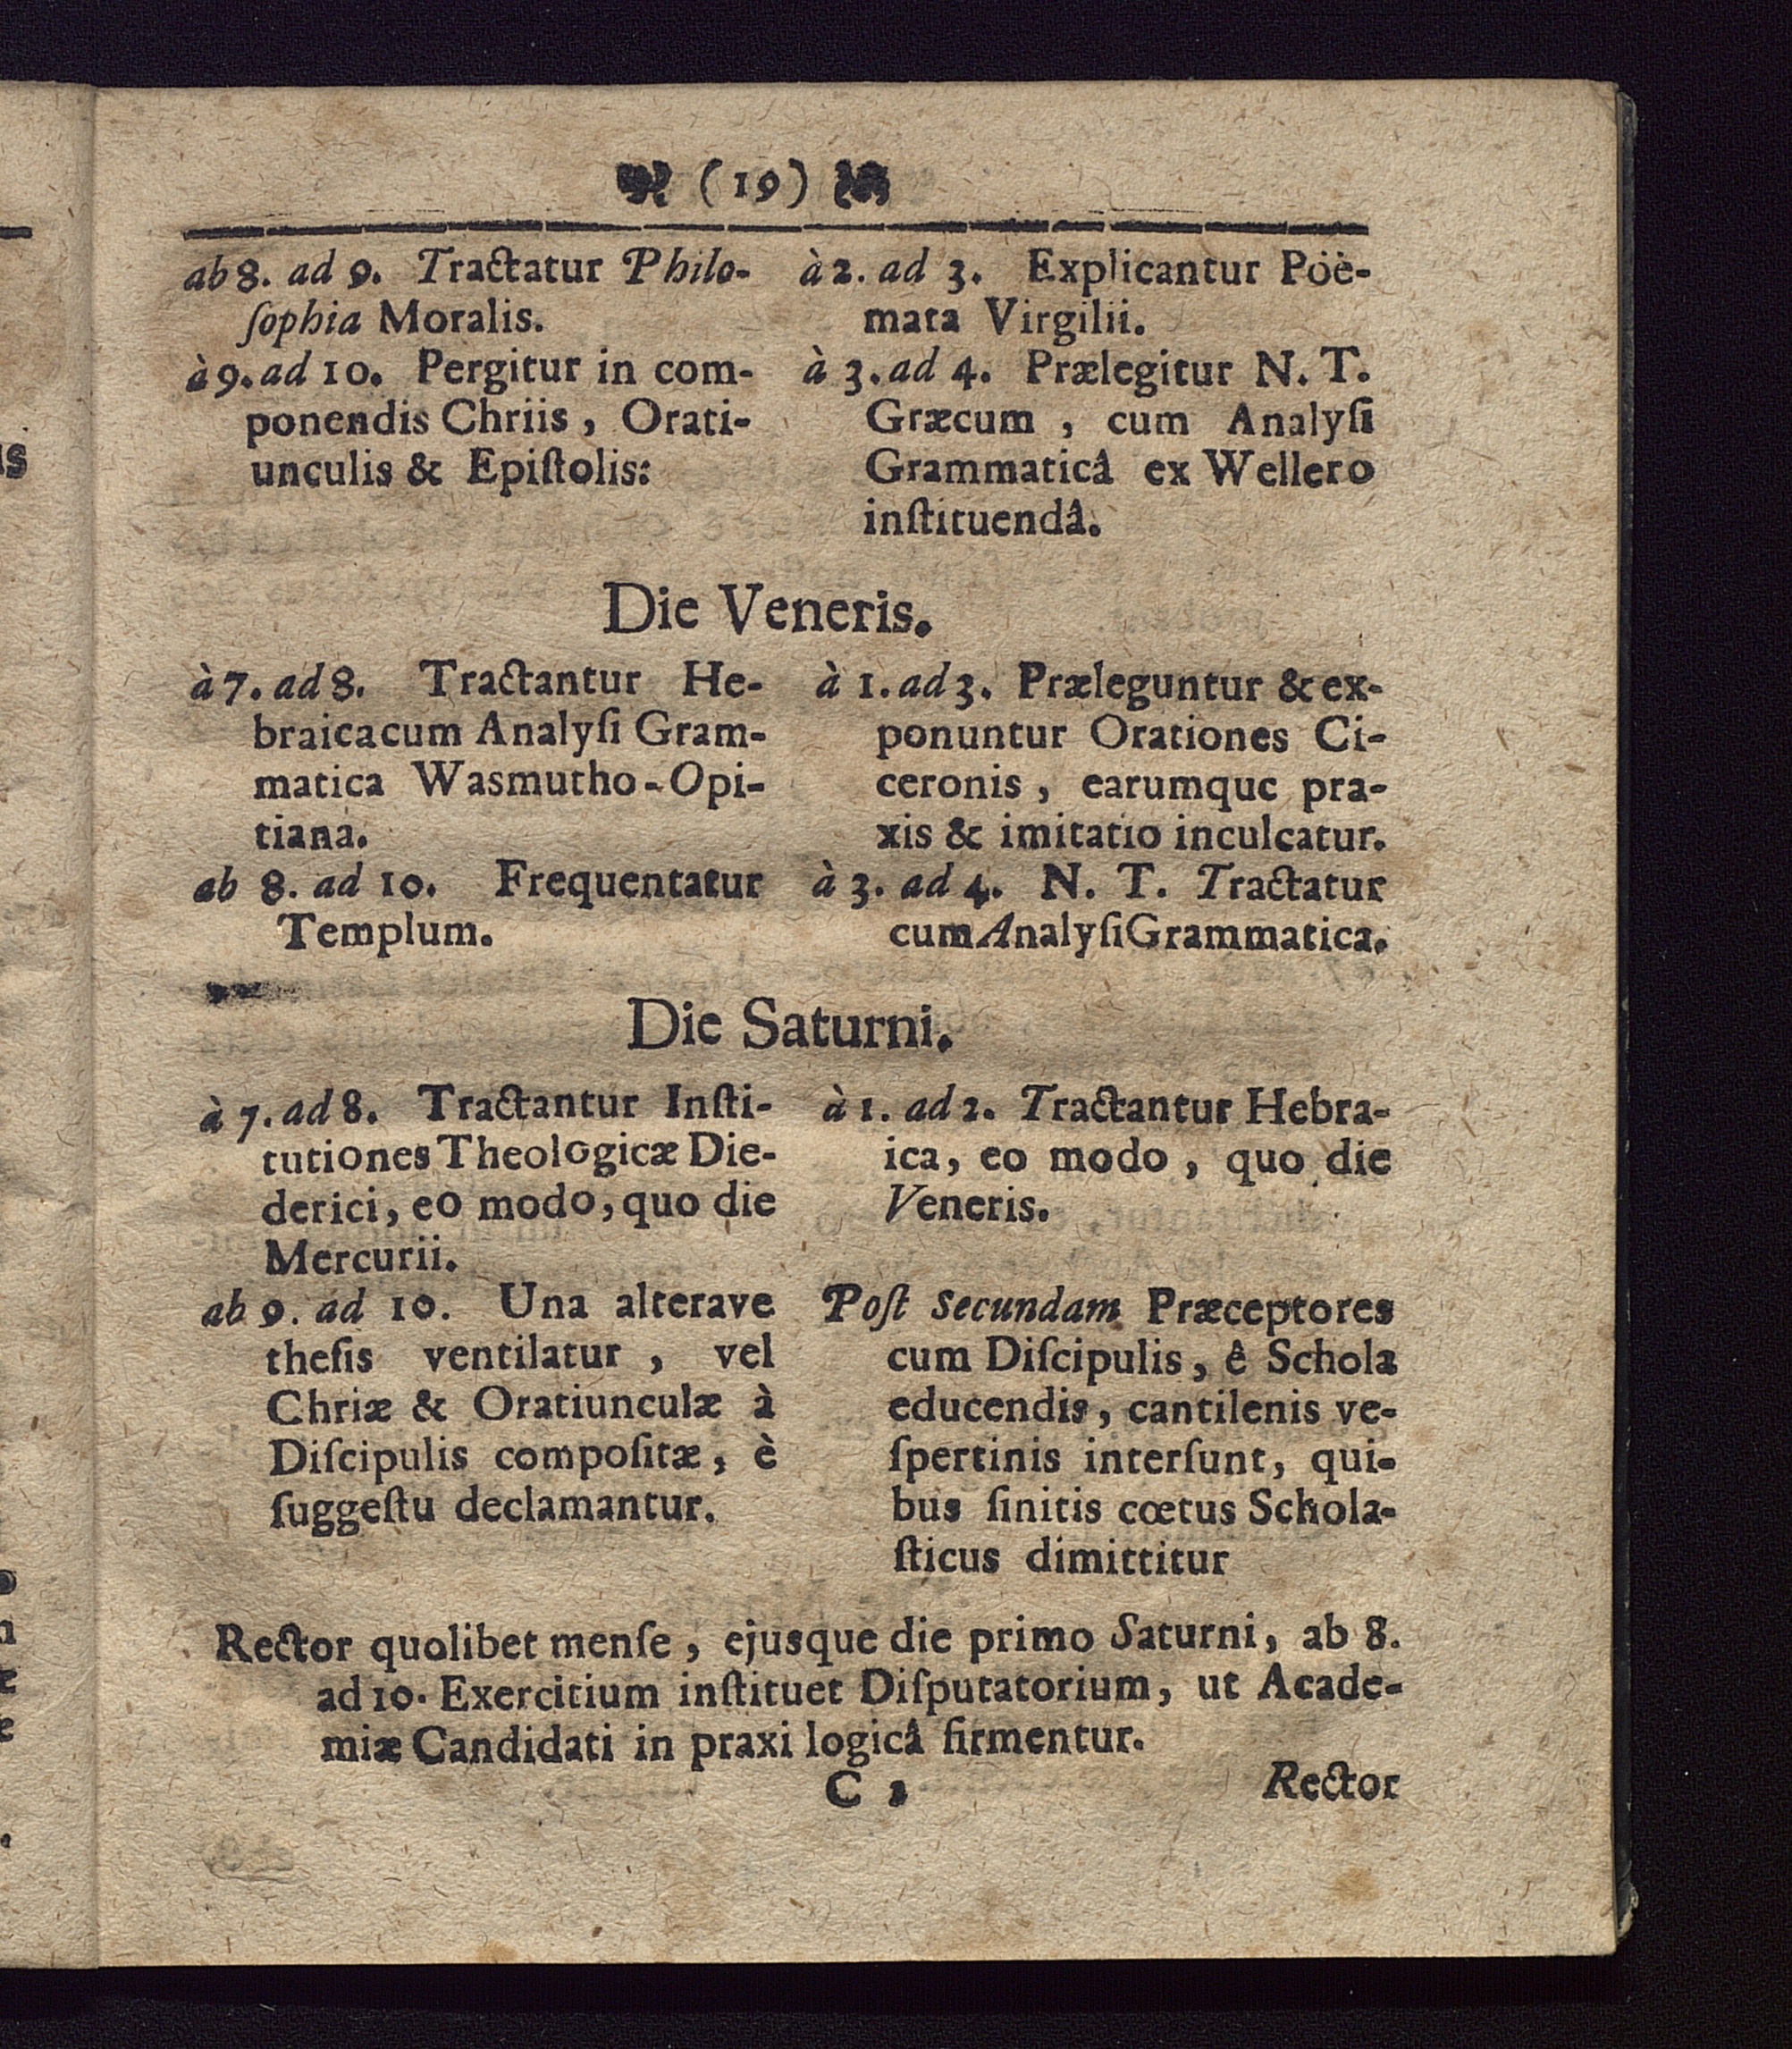 (19)
ab 8. ad 9. Tractatur Philo-
ſophia Moralis.
à 9. ad 10. Pergitur in com-
ponendis Chriis, Orati-
unculis & Epiſtolis:
à 2. ad 3. Explicantur Poë-
mata Virgilii.
à 3. ad 4. Prælegitur N. T.
Græcum, cum Analyſi
Grammaticâ ex Wellero
inſtituendâ.
Die Veneris.
à 7. ad 8. Tractantur He-
braica cum Analyſi Gram-
matica Wasmutho-Opi-
tiana.
ab 8. ad 10. Frequentatur
Templum.
à 1. ad 3. Præleguntur & ex-
ponuntur Orationes Ci-
ceronis, earumque pra-
xis & imitatio inculcatur.
à 3. ad 4. N. T. Tractatur
cum Analyſi Grammatica.
Die Saturni.
à 7. ad 8. Tractantur Inſti-
tutiones Theologicæ Die-
derici, eo modo, quo die
Mercurii.
ab 9. ad 10. Una alterave
theſis ventilatur, vel
Chriæ & Oratiunculæ à
Diſcipulis compoſitæ, è
ſuggeſtu declamantur.
à 1. ad 2. Tractantur Hebra-
ica, eo modo, quo die
Veneris.
Poſt Secundam Præceptores
cum Diſcipulis, ê Schola
educendis, cantilenis ve-
ſpertinis interſunt, qui-
bus finitis cœtus Schola-
ſticus dimittitur
Rector quolibet menſe, ejusque die primo Saturni, ab 8.
ad 10. Exercitium inſtituet Diſputatorium, ut Acade-
miæ Candidati in praxi logicâ firmentur.
C 2
Rector